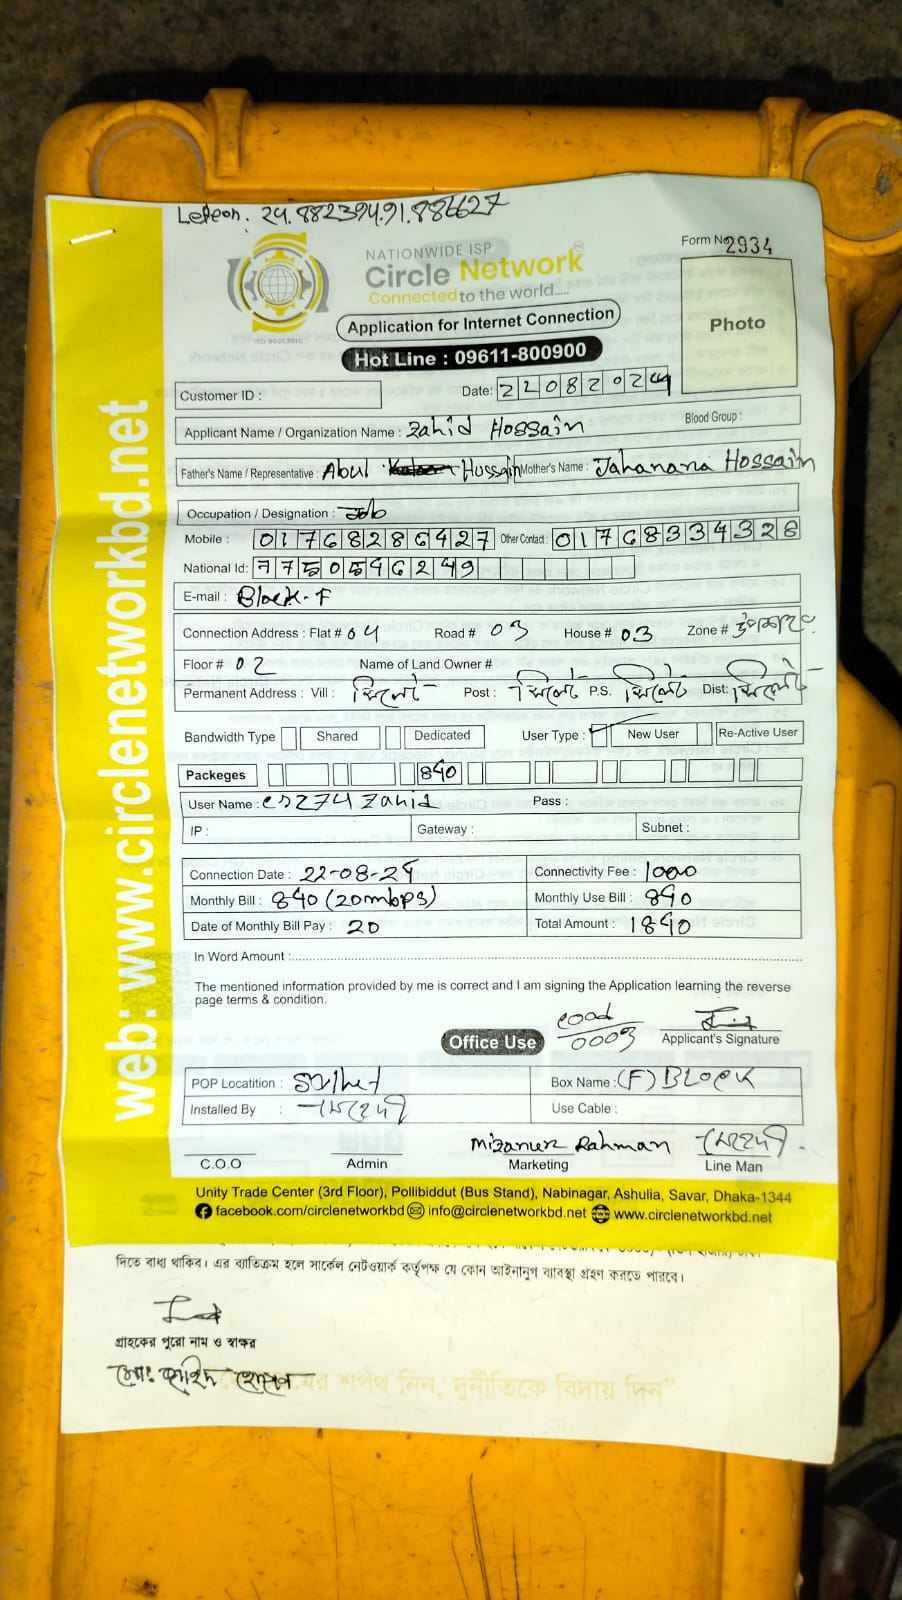 24.882394.91.884627
NATIONWIDE ISP
Circle Network
Connected to the world.....
ISO 9001:2015
Form No 2934
Photo
Application for Internet Connection
Hot Line : 09611-800900
Customer ID :
Date: 22082024
Applicant Name / Organization Name : Zahid Hossain
Blood Group :
Father's Name / Representative : Abul Hussain Mother's Name : Jahanana Hossain
Occupation / Designation : Job
Mobile : 01768286427 Other Contact : 01768334328
National Id: 7750546249
E-mail : Block-F
Connection Address : Flat # 04 Road # 03 House # 03 Zone #
Floor # 02 Name of Land Owner #
Permanent Address : Vill : সিলেট Post : সিলেট P.S. সিলেট Dist: সিলেট
Bandwidth Type Shared Dedicated User Type : New User Re-Active User
Packeges 840
User Name : cs274 Zahid Pass :
IP : Gateway : Subnet :
Connection Date : 22-08-24 Connectivity Fee : 1000
Monthly Bill : 840 (20mbps) Monthly Use Bill : 840
Date of Monthly Bill Pay : 20 Total Amount : 1840
In Word Amount :
The mentioned information provided by me is correct and I am signing the Application learning the reverse
page terms & condition.
Office Use
0003
Applicant's Signature
POP Locatition : Sylhet Box Name : (F) BLOCK
Installed By : মেহেদী Use Cable :
Mizanur Rahman মেহেদী
C.O.O Admin Marketing Line Man
Unity Trade Center (3rd Floor), Pollibiddut (Bus Stand), Nabinagar, Ashulia, Savar, Dhaka-1344
facebook.com/circlenetworkbd info@circlenetworkbd.net www.circlenetworkbd.net
web: www.circlenetworkbd.net
দিতে বাধ্য থাকিব। এর ব্যতিক্রম হলে সার্কেল নেটওয়ার্ক কর্তৃপক্ষ যে কোন আইনানুগ ব্যাবস্থা গ্রহণ করতে পারবে।
গ্রাহকের পুরো নাম ও স্বাক্ষর
মোঃ জাহিদ হোসেন
শপথ নিন, দুর্নীতিকে বিদায় দিন"